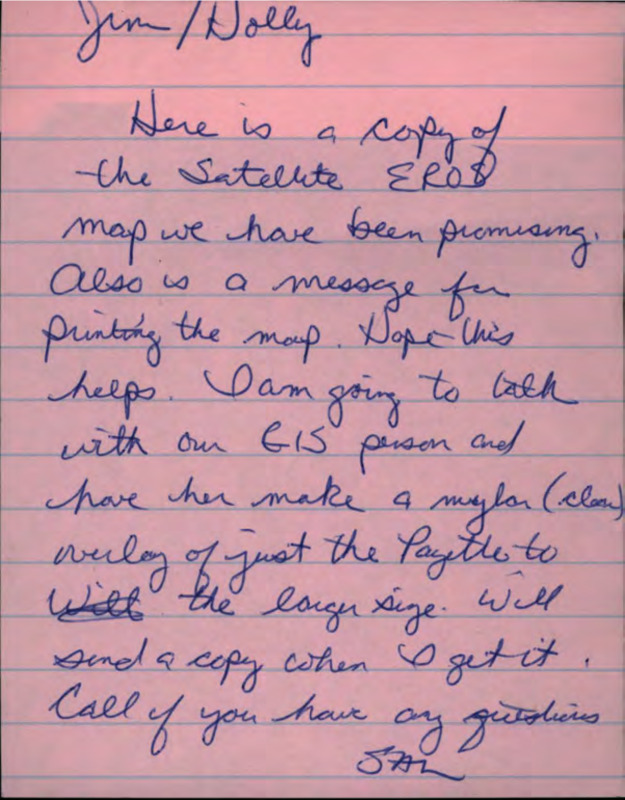 Jim/Holly
Here is a copy of
the Satellite EROS
map we have been promising.
Also is a message for
printing the map. Hope this
helps. I am going to talk
with our GIS person and
have her make a mylar (clear)
overlay of just the Payette to
the larger size. Will
send a copy when I get it.
Call if you have any questions